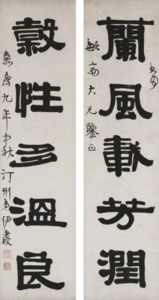 蘭風載芳潤
大兄鑒正
穀性多溫良
嘉慶九年中秋汀州弟伊秉綬